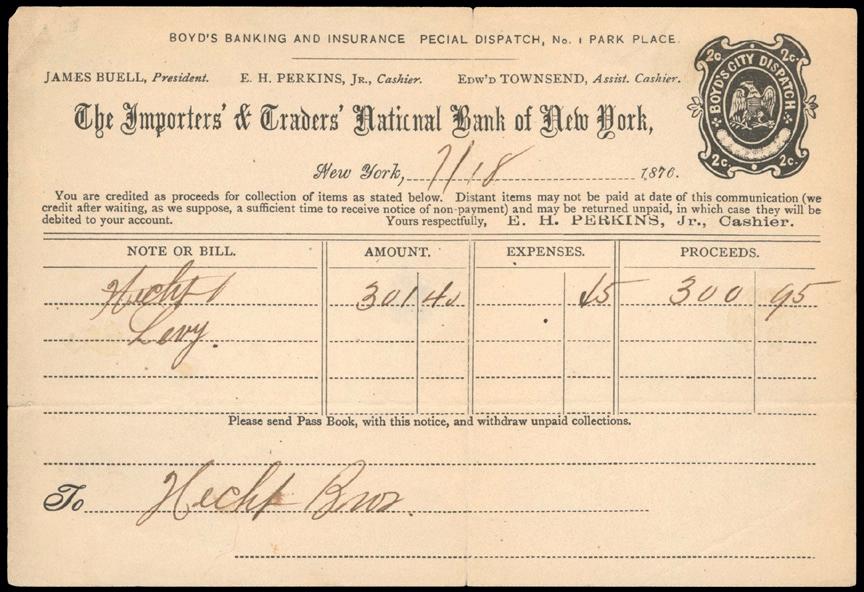 BOYD'S BANKING AND INSURANCE PECIAL DISPATCH, No. 1 PARK PLACE.
JAMES BUELL, President. E. H. PERKINS, Jr., Cashier. EDW'D TOWNSEND, Assist. Cashier.
2c. 2c.
BOYD'S CITY DISPATCH
2c. 2c.
The Importers' & Traders' National Bank of New York,
New York, 7/18 1876.
You are credited as proceeds for collection of items as stated below. Distant items may not be paid at date of this communication (we
credit after waiting, as we suppose, a sufficient time to receive notice of non-payment) and may be returned unpaid, in which case they will be
debited to your account. Yours respectfully, E. H. PERKINS, Jr., Cashier.
NOTE OR BILL. AMOUNT. EXPENSES. PROCEEDS.
Hecht 301 40 45 300 95
Levy.
Please send Pass Book, with this notice, and withdraw unpaid collections.
To Hecht Bros.